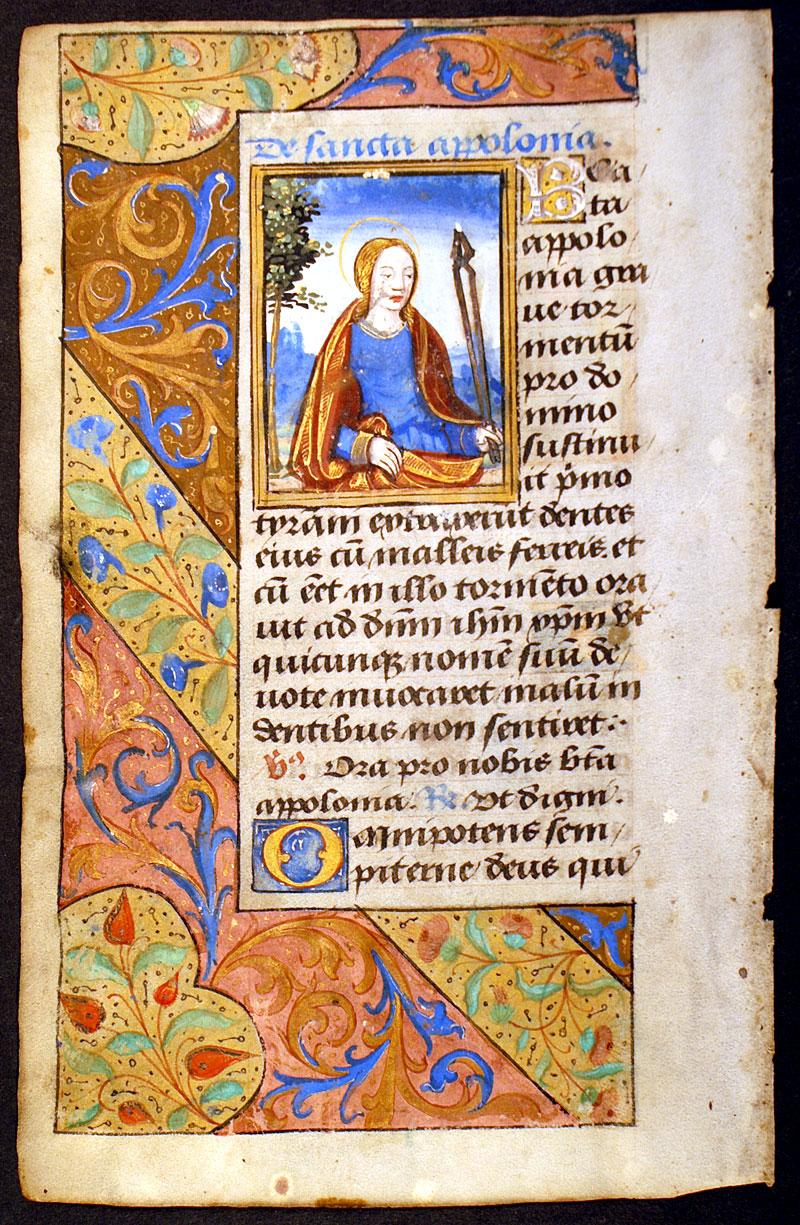 De sancta appolonia.
Bea
ta
appolo
nia gra
ue tor
mentũ
pro do
mino
sustinu
it p̃mo
tyrãni extraxerut dentes
eius cũ malleis ferreis. et
cũ eẽt in illo tormẽto ora
uit ad dñm ihm xp̃m vt
quicunqꝫ nomẽ suũ de
uote inuocaret malũ in
dentibus non sentiret.
V̊. Ora pro nobis bt̃a
appolonia. Re vt digni.
Omnipotens sem
piterne deus qui